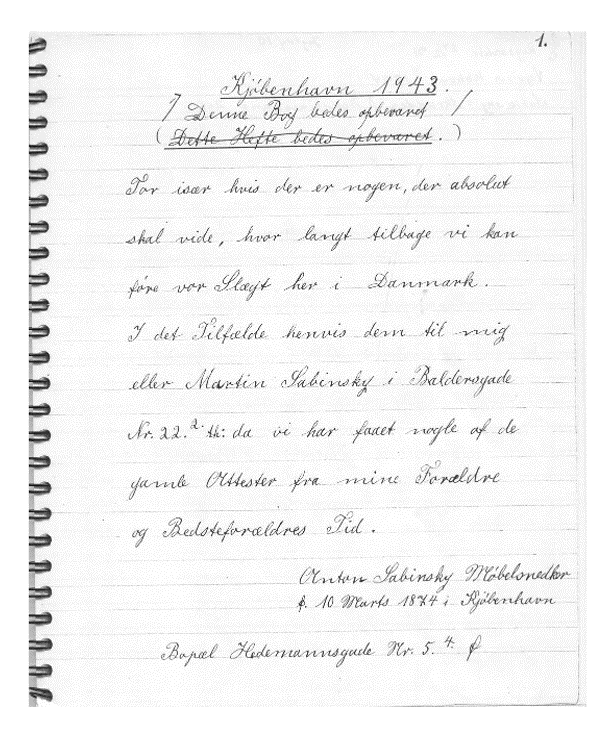 1.
Kjöbenhavn 1943.
/ Denne Bog bedes opbevaret /
( Dette Hefte bedes opbevaret. )
For især hvis der er nogen, der absolut
skal vide, hvor langt tilbage vi kan
føre vor Slægt her i Danmark.
I det Tilfælde henvis dem til mig
eller Martin Sabinsky i Baldersgade
Nr. 22. 2. th: da vi har faaet nogle af de
gamle Attester fra mine Forældre
og Bedsteforældres Tid.
Anton Sabinsky Møbelsnedker
f. 10 Marts 1874 i Kjøbenhavn
Bopæl Hedemannsgade Nr. 5. 4.